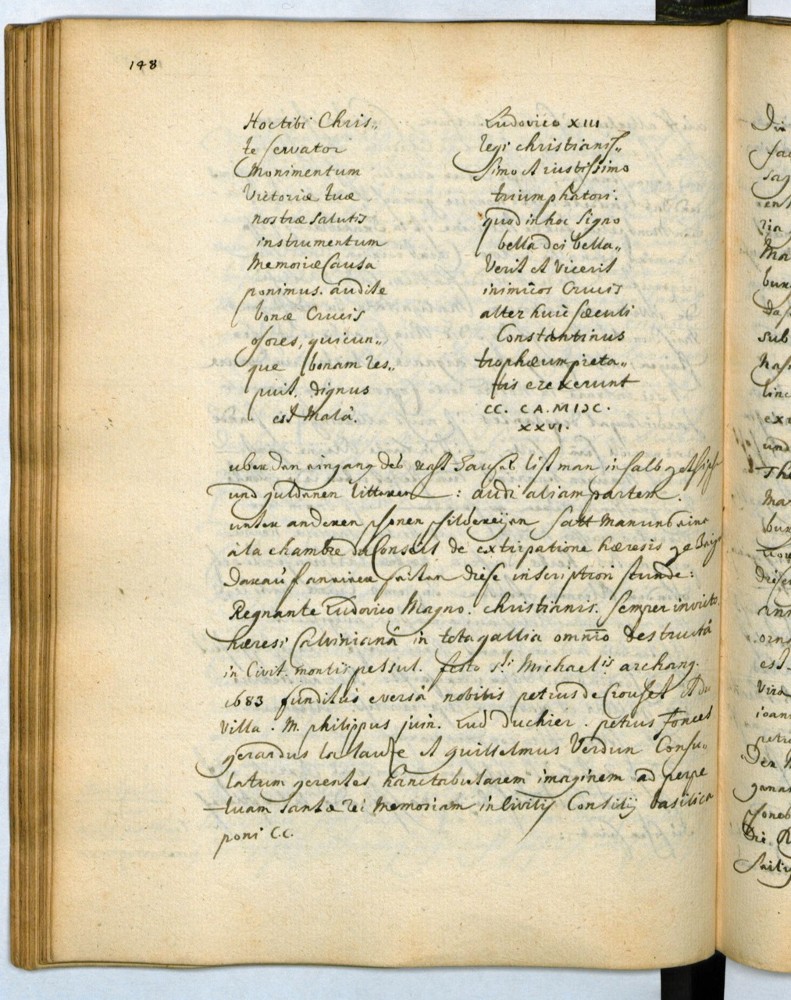 148
Hoc tibi Chris„
te servator
Monimentum
Victoriæ tuæ
nostræ salutis
instrumentum
Memoriæ Causa
ponimus. audite
bonæ Crucis
osores, quicun„
que bonam res„
puit. dignus
est Malâ.
Ludovico XIII
regi christianis„
simo et iustissimo
triumphatori.
quod in hoc signo
bella dei bella„
verit et vicerit
inimicos Crucis
alter huic sæculi
Constantinus
trophæum pieta„
tis erexerunt
CC. CA. M IƆC.
XXVI.
uber den eingang deß rast hauses list man in salb
und guldenen litteren : audi aliam partem.
unter anderen schönen schildereijen hatt Man uns eine
à la chambre du Conseil de extirpatione hæresis gezeigt
darauf annexen seiten diese inscription stunde:
Regnante Ludovico Magno. christianis. semper invicto.
hæresi Calvinianâ in tota gallia omnio destructâ
in Civit. montis pessul. festo sti. Michaelis archang.
1683 funditùs eversâ nobilis petrus de Crouset et de
villa. M. philippus juin. Lud duchier. petrus Fonces
gerardus la lause et guilielmus Verdun Consu„
latum gerentes hanc tabularem imaginem ad perpe
tuam santæ rei Memoriam in Civilis Consilij basilica
poni CC.